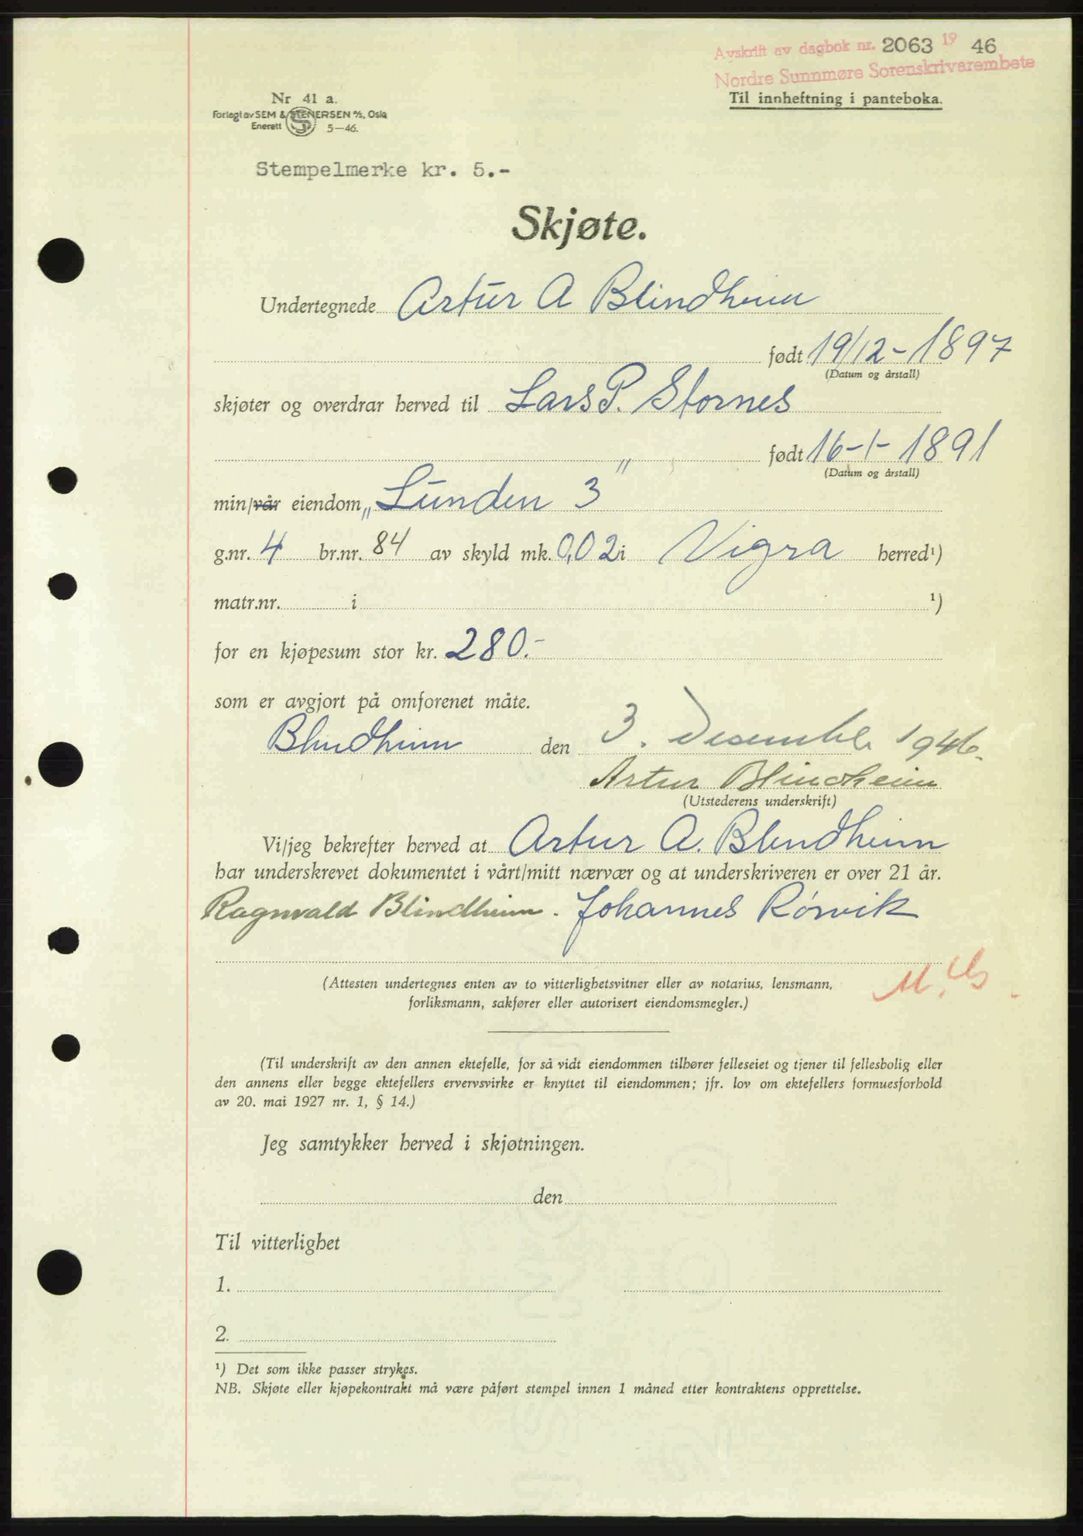 Avskrift av dagbok nr. 2063 19 46
Nordre Sunnmøre Sorenskrivarembete
Til innheftning i panteboka.
Nr 41 a.
Forlegt av SEM & STENERSEN A/S, Oslo
Enerett 5-46.
Stempelmerke kr. 5.-
Skjøte.
Undertegnede Artur A Blindheim
født 19/12-1897
(Datum og årstall)
skjøter og overdrar herved til Lars P. Stornes
født 16-1-1891
(Datum og årstall)
min/vår eiendom „Lunden 3"
g.nr. 4 br.nr. 84 av skyld mk. 0,02 i Vigra herred¹)
matr.nr. i ¹)
for en kjøpesum stor kr. 280.-
som er avgjort på omforenet måte.
Blindheim den 3. Desember 1946.
Artur Blindheim
(Utstederens underskrift)
Vi/jeg bekrefter herved at Artur A. Blindheim
har underskrevet dokumentet i vårt/mitt nærvær og at underskriveren er over 21 år.
Ragnvald Blindheim. Johannes Rørvik
(Attesten undertegnes enten av to vitterlighetsvitner eller av notarius, lensmann,
forliksmann, sakfører eller autorisert eiendomsmegler.)
(Til underskrift av den annen ektefelle, for så vidt eiendommen tilhører felleseiet og tjener til fellesbolig eller
den annens eller begge ektefellers ervervsvirke er knyttet til eiendommen; jfr. lov om ektefellers formuesforhold
av 20. mai 1927 nr. 1, § 14.)
Jeg samtykker herved i skjøtningen.
den
Til vitterlighet
1.
2.
¹) Det som ikke passer strykes.
NB. Skjøte eller kjøpekontrakt må være påført stempel innen 1 måned etter kontraktens opprettelse.